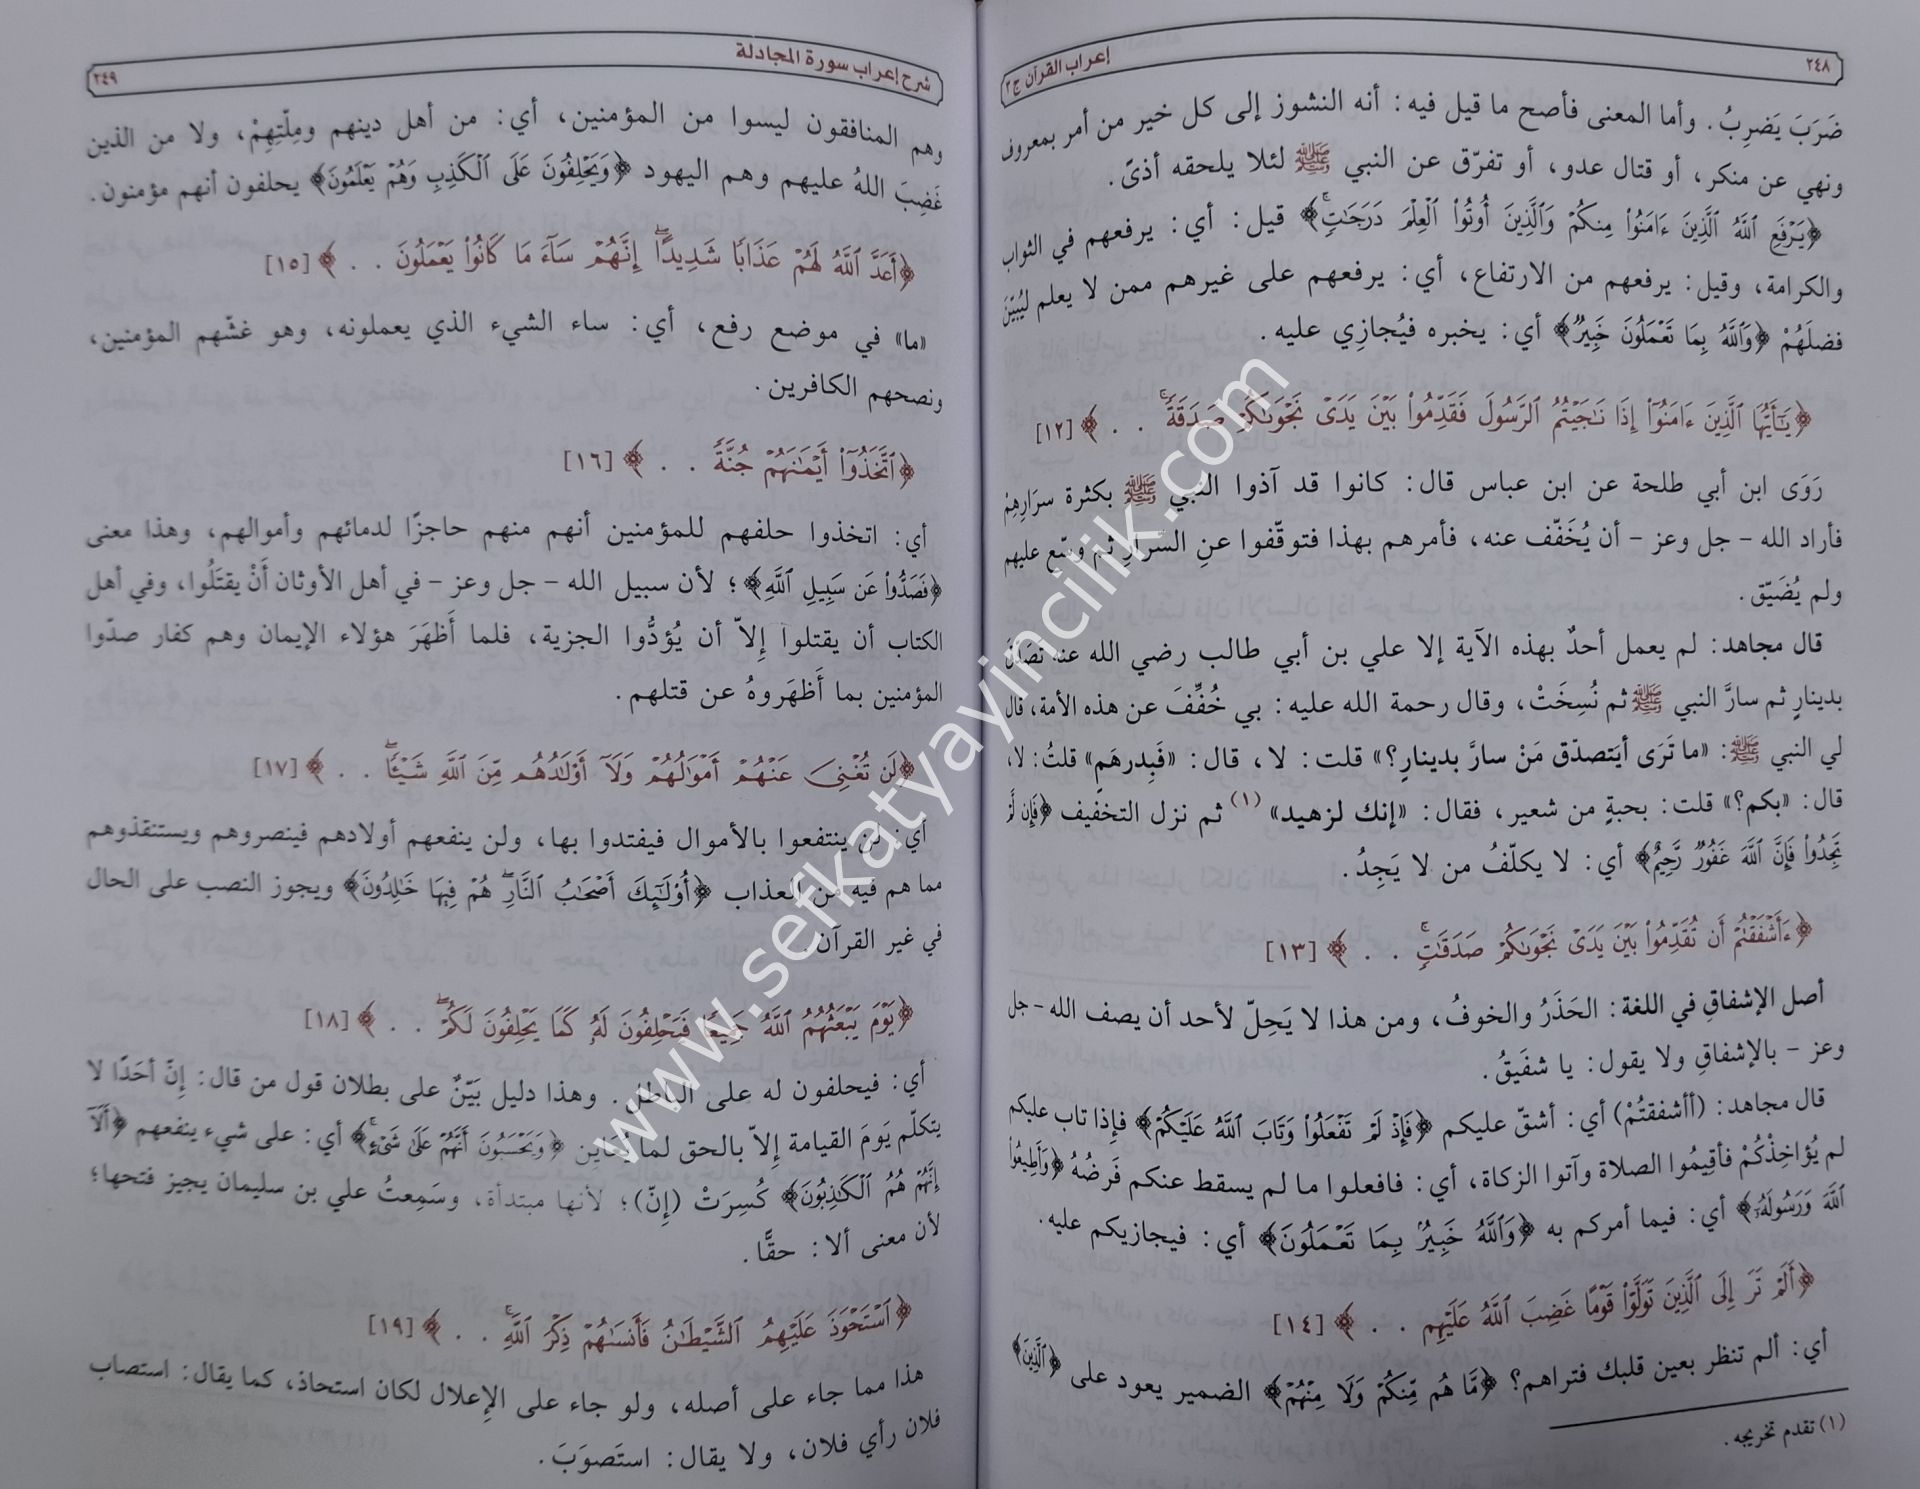 ٢٤٨
إعراب القرآن ج٢
ضَرَبَ يَضرِبُ. وأما المعنى فأصح ما قيل فيه: أنه النشوز إلى كل خير من أمر بمعروف
ونهي عن منكر، أو قتال عدو، أو تفرّق عن النبي ﷺ لئلا يلحقه أذىً.
﴿يَرْفَعِ ٱللَّهُ ٱلَّذِينَ ءَامَنُوا۟ مِنكُمْ وَٱلَّذِينَ أُوتُوا۟ ٱلْعِلْمَ دَرَجَـٰتٍ﴾ قيل: أي: يرفعهم في الثواب
والكرامة، وقيل: يرفعهم من الارتفاع، أي: يرفعهم على غيرهم ممن لا يعلم ليُبيّنَ
فضلَهُمْ ﴿وَٱللَّهُ بِمَا تَعْمَلُونَ خَبِيرٌ﴾ أي: يخبره فيُجازِي عليه.
﴿يَـٰٓأَيُّهَا ٱلَّذِينَ ءَامَنُوٓا۟ إِذَا نَـٰجَيْتُمُ ٱلرَّسُولَ فَقَدِّمُوا۟ بَيْنَ يَدَىْ نَجْوَىٰكُمْ صَدَقَةً . . ﴾ [١٢]
رَوَى ابن أبي طلحة عن ابن عباس قال: كانوا قد آذوا النبي ﷺ بكثرة سرَارِهِمْ
فأراد الله - جل وعز - أن يُخَفّف عنه، فأمرهم بهذا فتوقّفوا عنِ السّرَارِ ثم وسّع عليهم
ولم يُضَيّق.
قال مجاهد: لم يعمل أحدٌ بهذه الآية إلا علي بن أبي طالب رضي الله عنه تَصَدَّقَ
بدينارٍ ثم سارَّ النبي ﷺ ثم نُسِخَتْ، وقال رحمة الله عليه: بي خُفِّفَ عن هذه الأمة، قال
لي النبي ﷺ: «ما تَرَى أيَتصدّق مَنْ سارَّ بدينارٍ؟» قلت: لا، قال: «فَبِدرهَمٍ» قلتُ: لا،
قال: «بكم؟» قلت: بحبةٍ من شعير، فقال: «إنك لزهيد» (١) ثم نزل التخفيف ﴿فَإِن لَّمْ
تَجِدُوا۟ فَإِنَّ ٱللَّهَ غَفُورٌ رَّحِيمٌ﴾ أي: لا يكلّفُ من لا يَجِدُ.
﴿ءَأَشْفَقْتُمْ أَن تُقَدِّمُوا۟ بَيْنَ يَدَىْ نَجْوَىٰكُمْ صَدَقَـٰتٍ . . ﴾ [١٣]
أصل الإشفاقِ في اللغة: الحَذَرُ والخوفُ، ومن هذا لا يَحِلّ لأحد أن يصف الله - جل
وعز - بالإشفاقِ ولا يقول: يا شفَيقُ.
قال مجاهد: (أأشفقتُمْ) أي: أشقّ عليكم ﴿فَإِذْ لَمْ تَفْعَلُوا۟ وَتَابَ ٱللَّهُ عَلَيْكُمْ﴾ فإذا تاب عليكم
لم يُؤاخِذْكُمْ فأقِيمُوا الصلاة وآتوا الزكاة، أي: فافعلوا ما لم يسقط عنكم فَرضُهُ ﴿وَأَطِيعُوا۟
ٱللَّهَ وَرَسُولَهُۥ﴾ أي: فيما أمركم به ﴿وَٱللَّهُ خَبِيرٌۢ بِمَا تَعْمَلُونَ﴾ أي: فيجازيكم عليه.
﴿أَلَمْ تَرَ إِلَى ٱلَّذِينَ تَوَلَّوْا۟ قَوْمًا غَضِبَ ٱللَّهُ عَلَيْهِم . . ﴾ [١٤]
أي: ألم تنظر بعين قلبك فتراهم؟ ﴿مَّا هُم مِّنكُمْ وَلَا مِنْهُمْ﴾ الضمير يعود على ﴿ٱلَّذِينَ﴾
(١) تقدم تخريجه.
شرح إعراب سورة المجادلة
٢٤٩
وهم المنافقون ليسوا من المؤمنين، أي: من أهل دينهم ومِلّتِهِمْ، ولا من الذين
غَضِبَ اللهُ عليهم وهم اليهود ﴿وَيَحْلِفُونَ عَلَى ٱلْكَذِبِ وَهُمْ يَعْلَمُونَ﴾ يحلفون أنهم مؤمنون.
﴿أَعَدَّ ٱللَّهُ لَهُمْ عَذَابًا شَدِيدًا إِنَّهُمْ سَآءَ مَا كَانُوا۟ يَعْمَلُونَ . . ﴾ [١٥]
«ما» في موضع رفع، أي: ساء الشيء الذي يعملونه، وهو غشّهم المؤمنين،
ونصحهم الكافرين.
﴿ٱتَّخَذُوٓا۟ أَيْمَـٰنَهُمْ جُنَّةً . . ﴾ [١٦]
أي: اتخذوا حلفهم للمؤمنين أنهم منهم حاجزًا لدمائهم وأموالهم، وهذا معنى
﴿فَصَدُّوا۟ عَن سَبِيلِ ٱللَّهِ﴾؛ لأن سبيل الله - جل وعز - في أهل الأوثان أنْ يقتَلُوا، وفي أهل
الكتاب أن يقتلوا إلاّ أن يُؤدُّوا الجزية، فلما أَظهَرَ هؤلاء الإيمان وهم كفار صدّوا
المؤمنين بما أَظهَروهُ عن قتلهم.
﴿لَّن تُغْنِىَ عَنْهُمْ أَمْوَٰلُهُمْ وَلَآ أَوْلَـٰدُهُم مِّنَ ٱللَّهِ شَيْـًٔا . . ﴾ [١٧]
أي: لن ينتفعوا بالأموال فيفتدوا بها، ولن ينفعهم أولادهم فينصروهم ويستنقذوهم
مما هم فيه من العذاب ﴿أُو۟لَـٰٓئِكَ أَصْحَـٰبُ ٱلنَّارِ هُمْ فِيهَا خَـٰلِدُونَ﴾ ويجوز النصب على الحال
في غير القرآن.
﴿يَوْمَ يَبْعَثُهُمُ ٱللَّهُ جَمِيعًا فَيَحْلِفُونَ لَهُۥ كَمَا يَحْلِفُونَ لَكُمْ . . ﴾ [١٨]
أي: فيحلفون له على الباطل. وهذا دليل بَيّنٌ على بطلان قول من قال: إنّ أحَدًا لا
يتكلّم يَومَ القيامة إلاّ بالحق لما يُعَاين ﴿وَيَحْسَبُونَ أَنَّهُمْ عَلَىٰ شَىْءٍ﴾ أي: على شيء ينفعهم ﴿أَلَآ
إِنَّهُمْ هُمُ ٱلْكَـٰذِبُونَ﴾ كُسِرَتْ (إنّ)؛ لأنها مبتدأة، وسَمِعتُ علي بن سليمان يجيز فتحها؛
لأن معنى ألا: حقًّا.
﴿ٱسْتَحْوَذَ عَلَيْهِمُ ٱلشَّيْطَـٰنُ فَأَنسَىٰهُمْ ذِكْرَ ٱللَّهِ . . ﴾ [١٩]
هذا مما جاء على أصله، ولو جاء على الإعلال لكان استحاذ، كما يقال: استصاب
فلان رأي فلان، ولا يقال: استَصوَبَ.
www.sefkatyayincilik.com